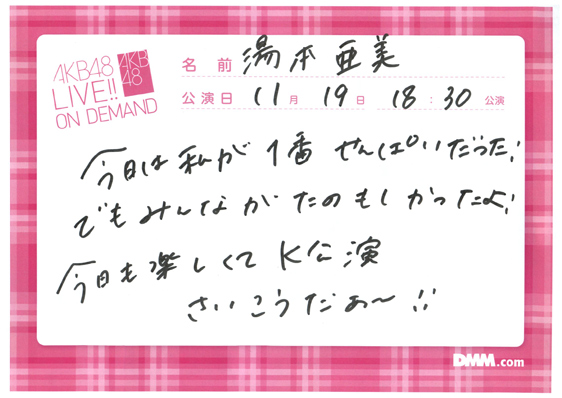 AKB48
LIVE!!
ON DEMAND
AKB
48
名前 湯本亜美
公演日 11月 19日 18:30 公演
今日は私が1番せんぱいだった!
でもみんながたのもしかったよ!
今日も楽しくてK公演
さいこうだぁ〜!!
DMM.com